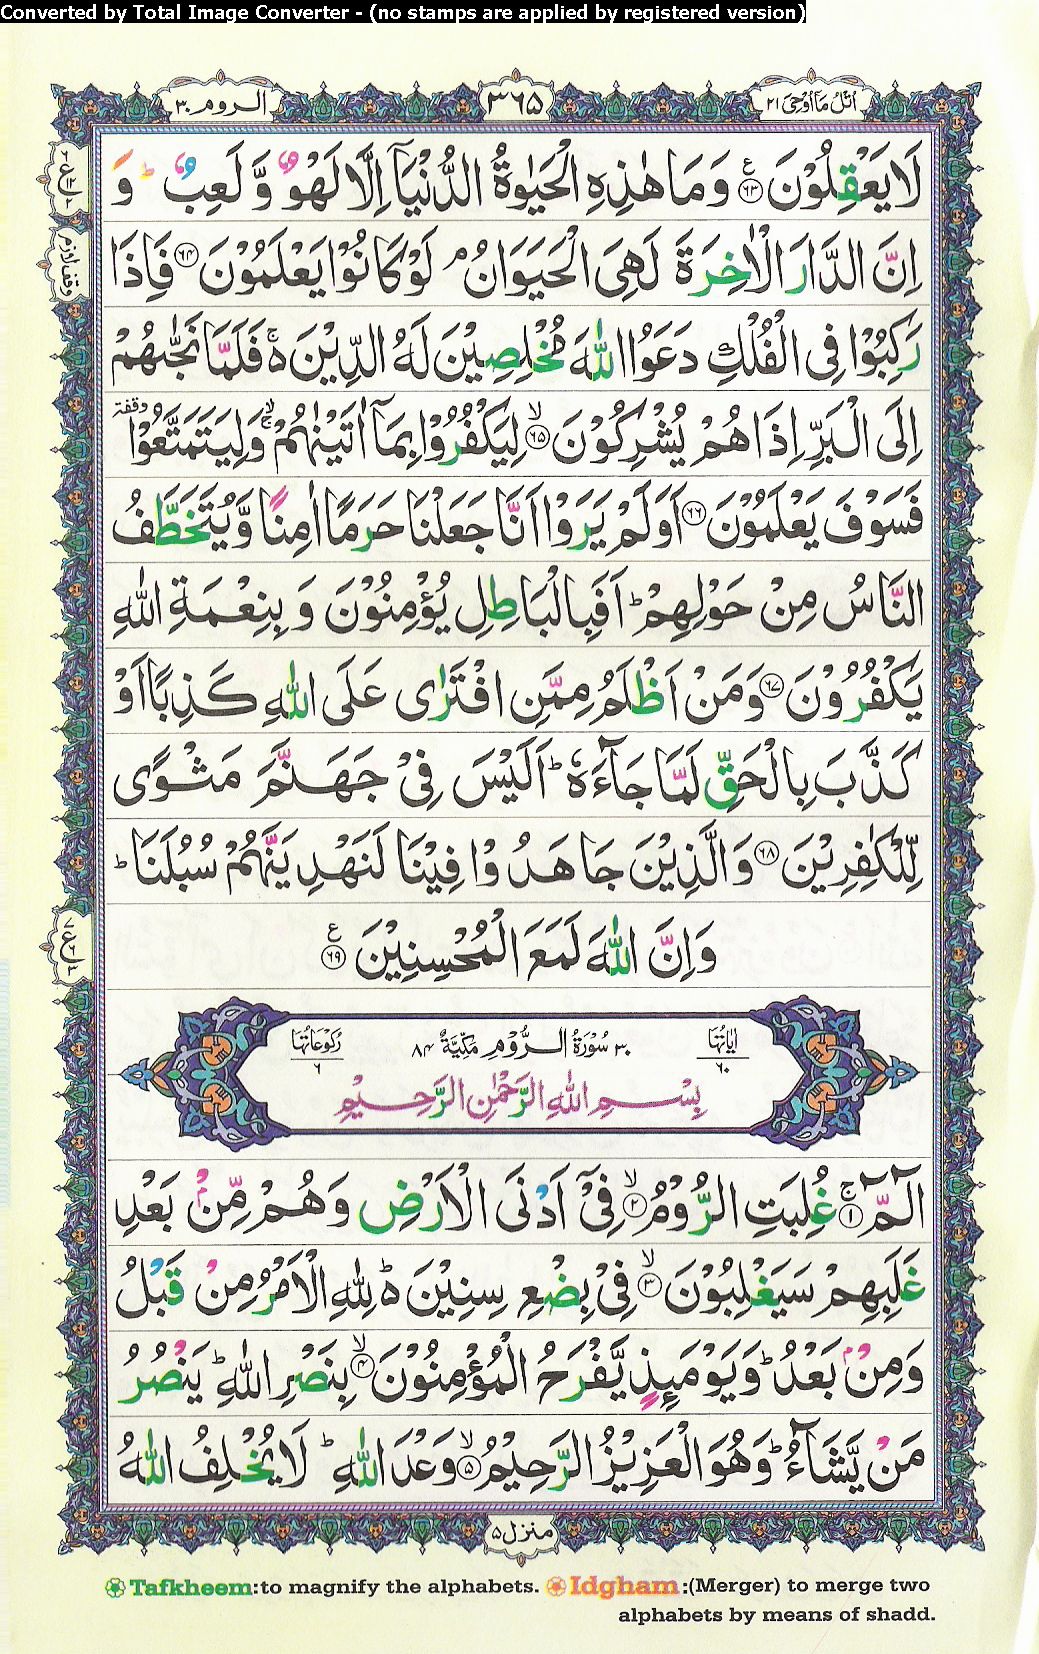 Converted by Total Image Converter - (no stamps are applied by registered version)
اتل ما اوحی ۲۱
۳۶۵
الروم ۳۰
لَا يَعْقِلُوْنَ ﴿۶۳﴾ وَمَا هٰذِهِ الْحَيٰوةُ الدُّنْيَاۤ اِلَّا لَهْوٌ وَّ لَعِبٌ ؕ وَ
اِنَّ الدَّارَ الْاٰخِرَةَ لَهِىَ الْحَيَوَانُ ۘ لَوْ كَانُوْا يَعْلَمُوْنَ ﴿۶۴﴾ فَاِذَا
رَكِبُوْا فِى الْفُلْكِ دَعَوُا اللّٰهَ مُخْلِصِيْنَ لَهُ الدِّيْنَ ۚ۬ فَلَمَّا نَجّٰىهُمْ
اِلَى الْبَرِّ اِذَا هُمْ يُشْرِكُوْنَ ۙ﴿۶۵﴾ لِيَكْفُرُوْا بِمَاۤ اٰتَيْنٰهُمْ ۚۙ وَلِيَتَمَتَّعُوْا وقفة
فَسَوْفَ يَعْلَمُوْنَ ﴿۶۶﴾ اَوَلَمْ يَرَوْا اَنَّا جَعَلْنَا حَرَمًا اٰمِنًا وَّيُتَخَطَّفُ
النَّاسُ مِنْ حَوْلِهِمْ ؕ اَفَبِالْبَاطِلِ يُؤْمِنُوْنَ وَ بِنِعْمَةِ اللّٰهِ
يَكْفُرُوْنَ ﴿۶۷﴾ وَمَنْ اَظْلَمُ مِمَّنِ افْتَرٰى عَلَى اللّٰهِ كَذِبًا اَوْ
كَذَّبَ بِالْحَقِّ لَمَّا جَآءَهٗ ؕ اَلَيْسَ فِىْ جَهَنَّمَ مَثْوًى
لِّلْكٰفِرِيْنَ ﴿۶۸﴾ وَالَّذِيْنَ جَاهَدُوْا فِيْنَا لَنَهْدِيَنَّهُمْ سُبُلَنَا ؕ
وَاِنَّ اللّٰهَ لَمَعَ الْمُحْسِنِيْنَ ﴿۶۹﴾
اٰيَاتُهَا ۶۰
۳۰ سُوْرَةُ الرُّوْمِ مَكِّيَّةٌ ۸۴
رُكُوْعَاتُهَا ۶
بِسْمِ اللّٰهِ الرَّحْمٰنِ الرَّحِيْمِ
الٓمّٓ ۚ﴿۱﴾ غُلِبَتِ الرُّوْمُ ۙ﴿۲﴾ فِىْۤ اَدْنَى الْاَرْضِ وَهُمْ مِّنْۢ بَعْدِ
غَلَبِهِمْ سَيَغْلِبُوْنَ ۙ﴿۳﴾ فِىْ بِضْعِ سِنِيْنَ ؕ۬ لِلّٰهِ الْاَمْرُ مِنْ قَبْلُ
وَمِنْۢ بَعْدُ ؕ وَيَوْمَئِذٍ يَّفْرَحُ الْمُؤْمِنُوْنَ ۙ﴿۴﴾ بِنَصْرِ اللّٰهِ ؕ يَنْصُرُ
مَنْ يَّشَآءُ ؕ وَهُوَ الْعَزِيْزُ الرَّحِيْمُ ۙ﴿۵﴾ وَعْدَ اللّٰهِ ؕ لَا يُخْلِفُ اللّٰهُ
منزل ۵
Tafkheem:to magnify the alphabets. Idgham:(Merger) to merge two
alphabets by means of shadd.